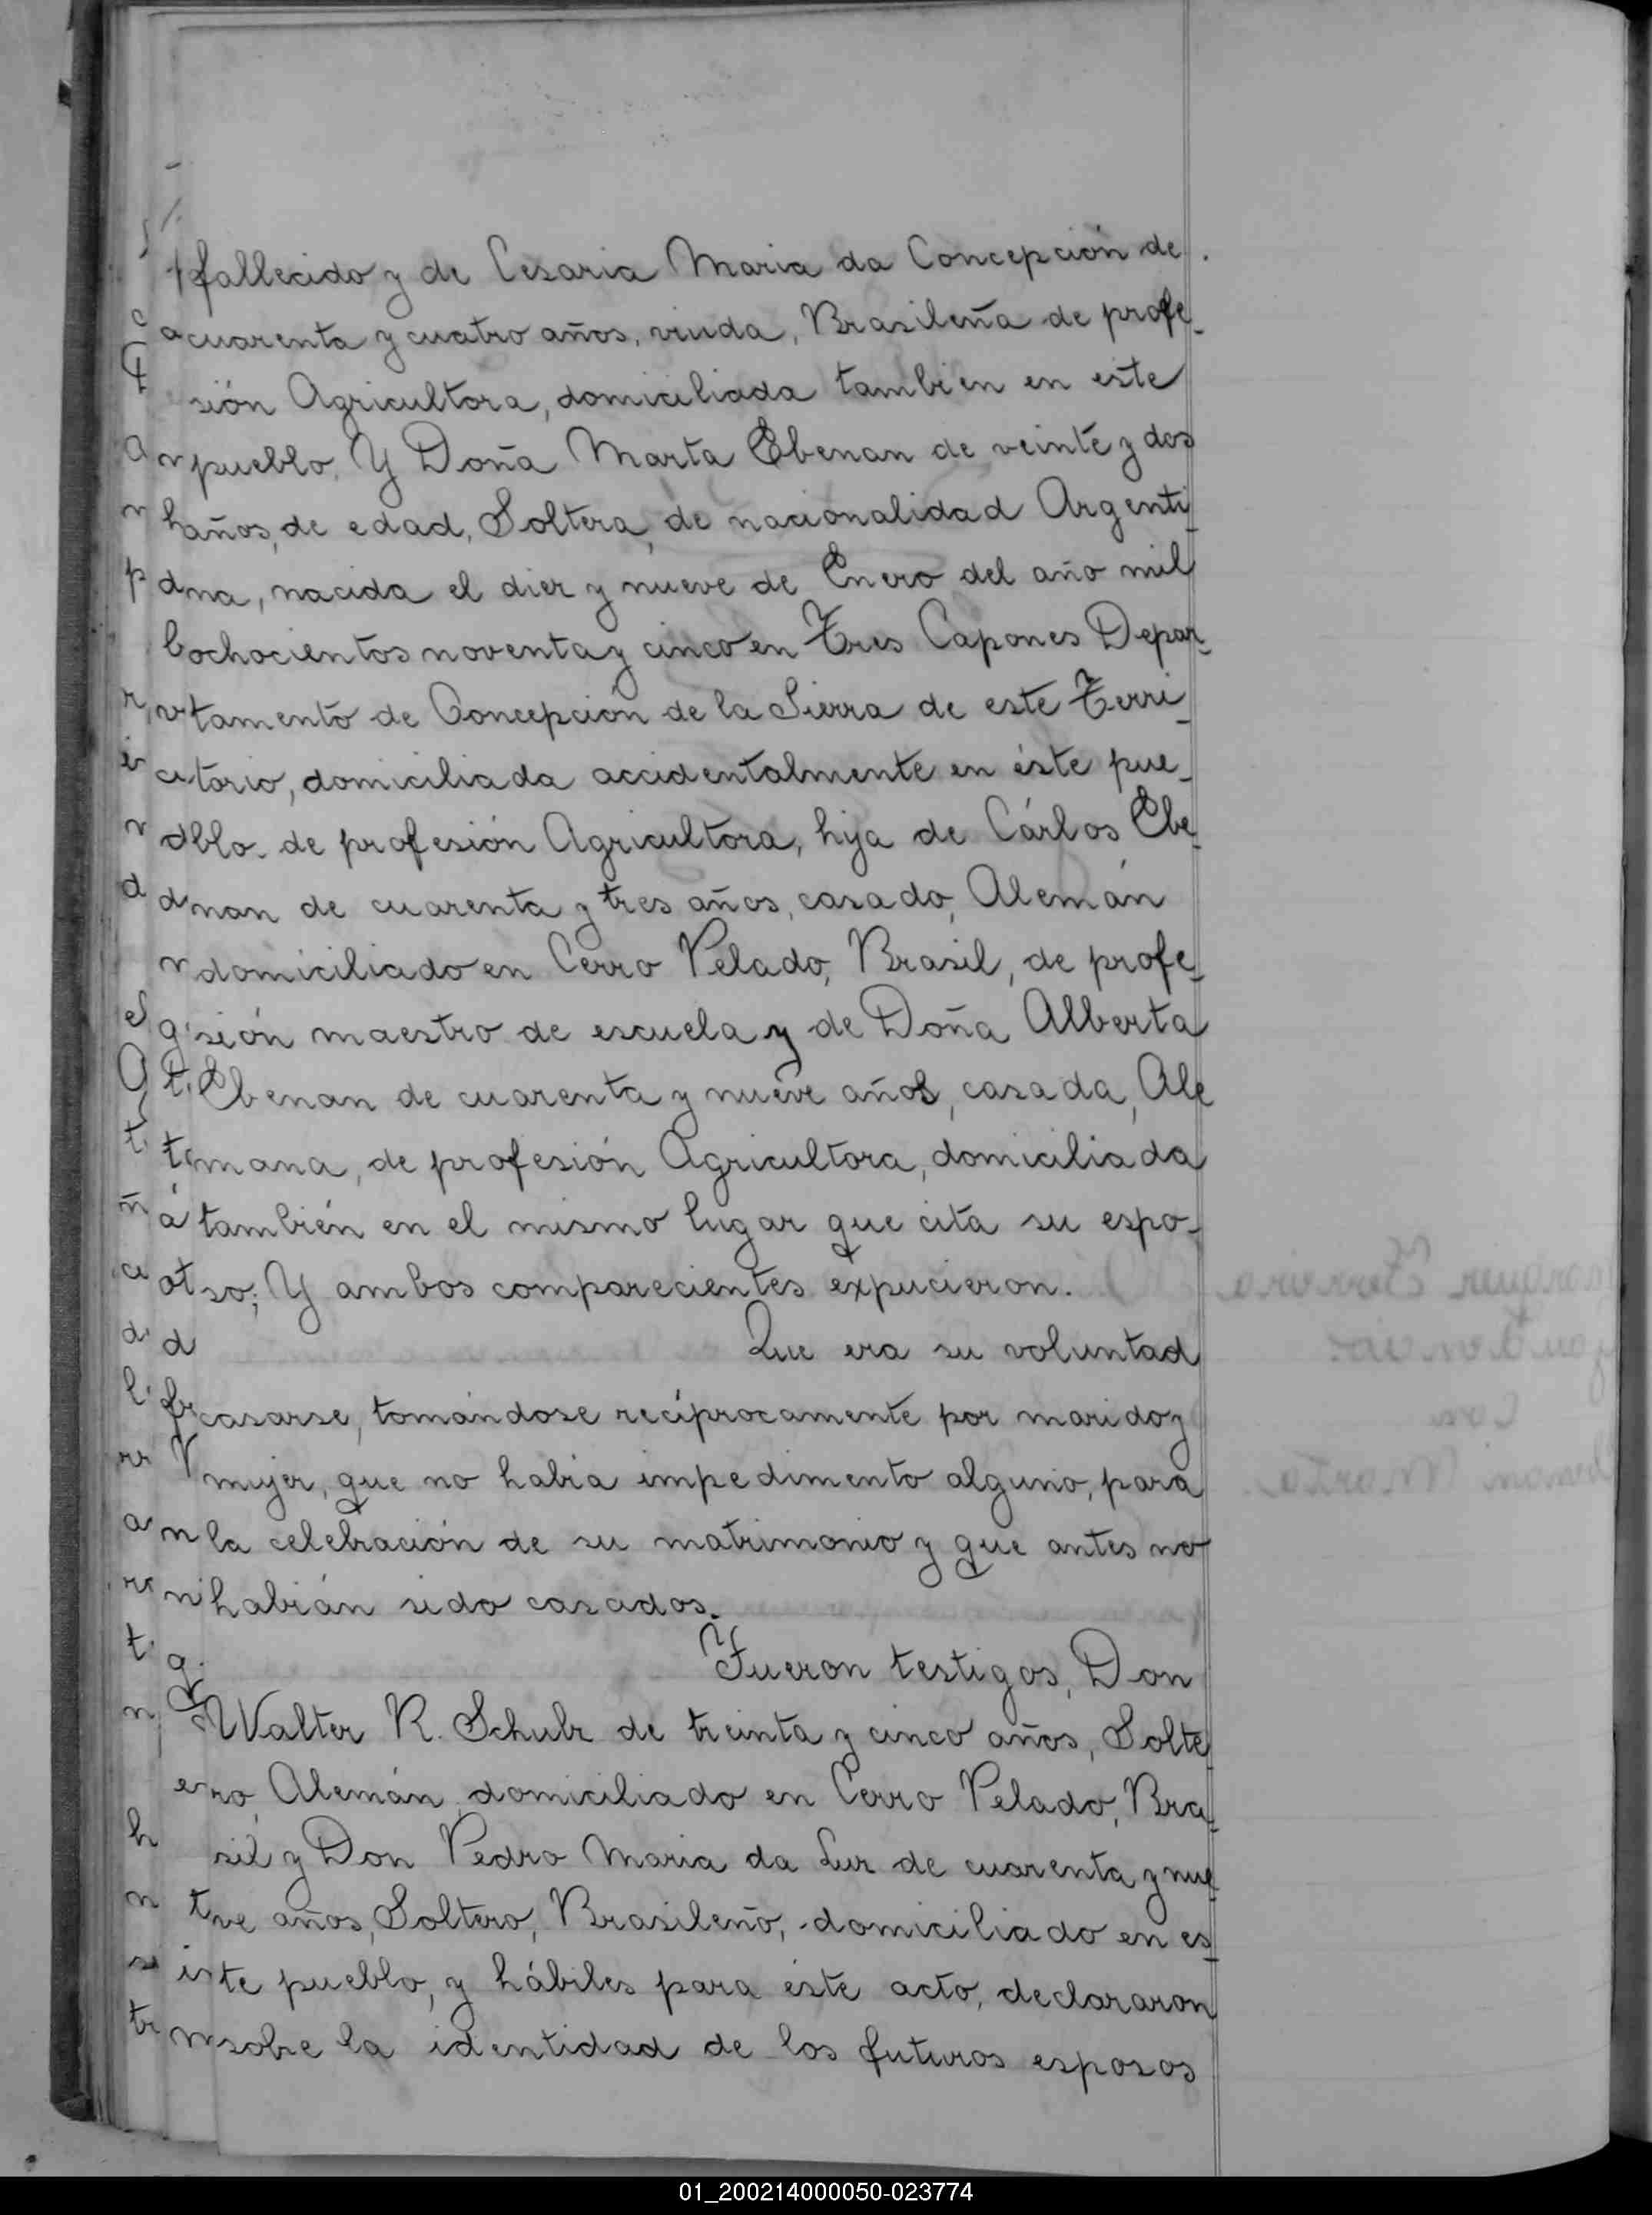 fallecido y de Cesaria Maria da Concepción de
cuarenta y cuatro años, viuda, Brasileña de profe-
sión Agricultora, domiciliada tambien en este
pueblo. Y Doña Marta Ebenan de veinte y dos
años, de edad, Soltera, de nacionalidad Argenti-
na, nacida el diez y nueve de Enero del año mil
ochocientos noventa y cinco en Tres Capones Depar-
tamento de Concepción de la Sierra de este Terri-
torio, domiciliada accidentalmente en éste pue-
blo. de profesión Agricultora, hija de Cárlos Ebe-
nan de cuarenta y tres años, casado, Alemán
domiciliado en Cerro Pelado, Brasil, de profe-
sión maestro de escuela y de Doña Alberta
Ebenan de cuarenta y nueve años, casada, Ale
mana, de profesión Agricultora, domiciliada
también en el mismo lugar que cita su espo-
so; Y ambos comparecientes expucieron.
Que era su voluntad
casarse, tomándose recíprocamente por marido y
mujer, que no habia impedimento alguno, para
la celebración de su matrimonio y que antes no
habián sido casados.
Fueron testigos, Don
Walter R. Schulz de treinta y cinco años, Solte
ro, Alemán, domiciliado en Cerro Pelado, Bra-
sil y Don Pedro Maria da Luz de cuarenta y nue-
ve años, Soltero, Brasileño, domiciliado en es-
te pueblo, y hábiles para éste acto, declararon
sobre la identidad de los futuros esposos
01_200214000050-023774